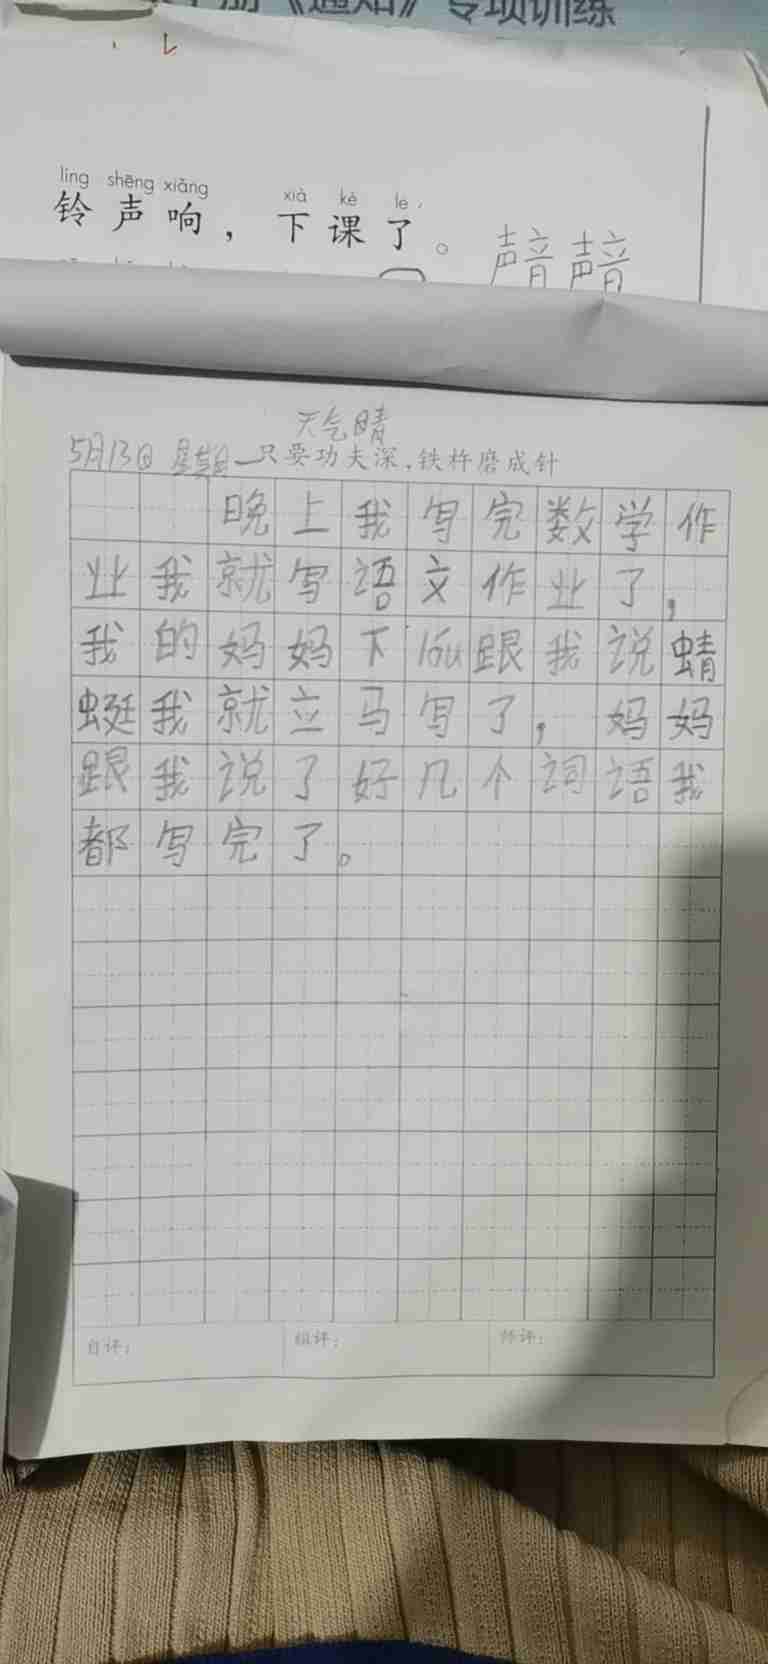 册《通知》专项训练
líng shēng xiǎng xià kè le
铃声响，下课了。
声音声音
天气晴
5月13日 星期一
只要功夫深，铁杵磨成针
晚上我写完数学作
业我就写语文作业了，
我的妈妈下lóu跟我说蜻
蜓我就立马写了，妈妈
跟我说了好几个词语我
都写完了。
自评：
组评：
师评：